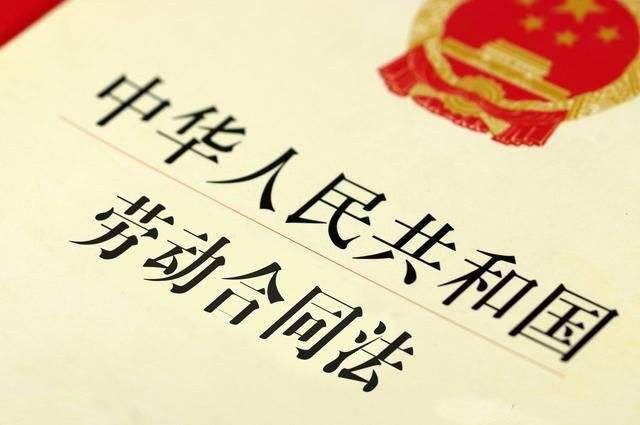 中华人民共和国
劳动合同法